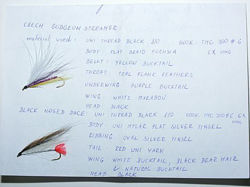 CZECH GUDGEON STREAMER:
material used: UNI THREAD BLACK 8/0 HOOK: TMC 300 # 6
BODY FLAT BRAID FUCHSIA
BELLY: YELLOW BUCKTAIL
THROAT: TEAL FLANK FEATHERS
UNDERWING PURPLE BUCKTAIL
WING WHITE MARABOU
HEAD BLACK
BLACK NOSED DACE UNI THREAD BLACK 8/0 HOOK TMC 300 # 6
BODY UNI MYLAR FLAT SILVER TINSEL
RIBBING OVAL SILVER TINSEL
TAIL RED UNI YARN
WING WHITE BUCKTAIL, BLACK BEAR HAIR
& NATURAL BUCKTAIL
HEAD BLACK